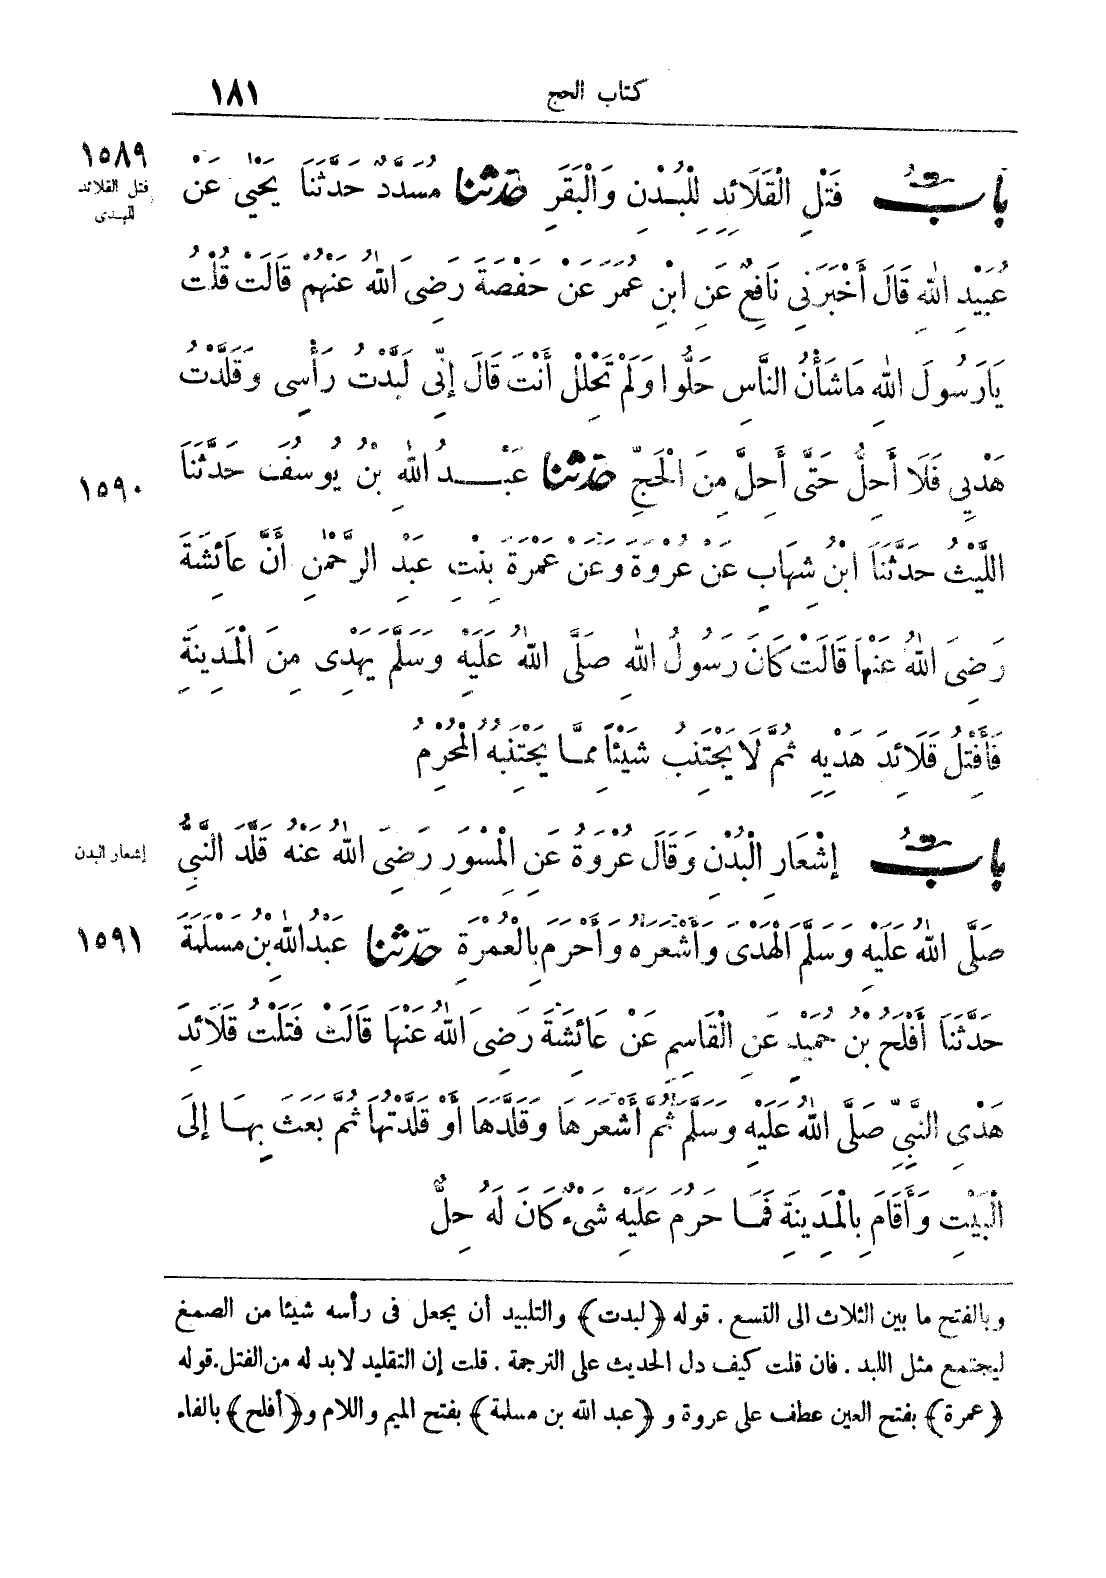 كتاب الحج ١٨١
١٥٨٩
فتل القلائد
للهدى
بابٌ فَتْلِ الْقَلَائِدِ لِلْبُدْنِ وَالْبَقَرِ حدثنا مُسَدَّدٌ حَدَّثَنَا يَحْيَى عَنْ
عُبَيْدِ اللهِ قَالَ أَخْبَرَنِي نَافِعٌ عَنِ ابْنِ عُمَرَ عَنْ حَفْصَةَ رَضِىَ اللهُ عَنْهُمْ قَالَتْ قُلْتُ
يَارَسُولَ اللهِ مَاشَأْنُ النَّاسِ حَلُّوا وَلَمْ تَحْلِلْ أَنْتَ قَالَ إِنِّى لَبَّدْتُ رَأْسِى وَقَلَّدْتُ
١٥٩٠ هَدْيِى فَلَا أَحِلُّ حَتَّى أَحِلَّ مِنَ الْحَجِّ حدثنا عَبْدُ اللهِ بْنُ يُوسُفَ حَدَّثَنَا
اللَّيْثُ حَدَّثَنَا ابْنُ شِهَابٍ عَنْ عُرْوَةَ وَعَنْ عَمْرَةَ بِنْتِ عَبْدِ الرَّحْمٰنِ أَنَّ عَائِشَةَ
رَضِىَ اللهُ عَنْهَا قَالَتْ كَانَ رَسُولُ اللهِ صَلَّى اللهُ عَلَيْهِ وَسَلَّمَ يُهْدِى مِنَ الْمَدِينَةِ
فَأَفْتِلُ قَلَائِدَ هَدْيِهِ ثُمَّ لَا يَجْتَنِبُ شَيْئًا مِمَّا يَجْتَنِبُهُ الْمُحْرِمُ
إشعار البدن
بابٌ إِشْعَارِ الْبُدْنِ وَقَالَ عُرْوَةُ عَنِ الْمِسْوَرِ رَضِىَ اللهُ عَنْهُ قَلَّدَ النَّبِىُّ
١٥٩١ صَلَّى اللهُ عَلَيْهِ وَسَلَّمَ الْهَدْىَ وَأَشْعَرَهُ وَأَحْرَمَ بِالْعُمْرَةِ حدثنا عَبْدُ اللهِ بْنُ مَسْلَمَةَ
حَدَّثَنَا أَفْلَحُ بْنُ حُمَيْدٍ عَنِ الْقَاسِمِ عَنْ عَائِشَةَ رَضِىَ اللهُ عَنْهَا قَالَتْ فَتَلْتُ قَلَائِدَ
هَدْىِ النَّبِىِّ صَلَّى اللهُ عَلَيْهِ وَسَلَّمَ ثُمَّ أَشْعَرَهَا وَقَلَّدَهَا أَوْ قَلَّدْتُهَا ثُمَّ بَعَثَ بِهَا إِلَى
الْبَيْتِ وَأَقَامَ بِالْمَدِينَةِ فَمَا حَرُمَ عَلَيْهِ شَىْءٌ كَانَ لَهُ حِلٌّ
وبالفتح ما بين الثلاث الى التسع . قوله ﴿لبدت﴾ والتلبيد أن يجعل فى رأسه شيئا من الصمغ
ليجتمع مثل اللبد . فان قلت كيف دل الحديث على الترجمة . قلت إن التقليد لابد له من الفتل . قوله
﴿عمرة﴾ بفتح العين عطف على عروة و ﴿عبد الله بن مسلمة﴾ بفتح الميم واللام و ﴿أفلح﴾ بالفاء